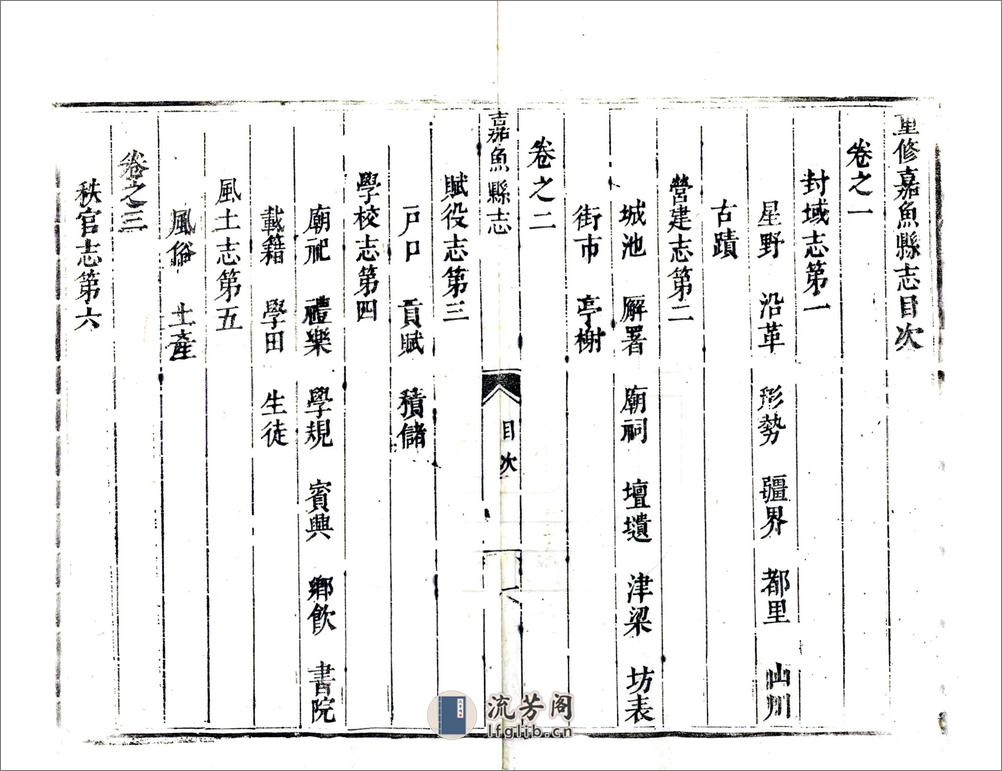 重修嘉魚縣志目次
卷之一
封域志第一
星野 沿革 形勢 疆界 都里 山川
古蹟
營建志第二
城池 廨署 廟祠 壇壝 津梁 坊表
街市 亭榭
卷之二
嘉魚縣志 目次 一
賦役志第三
戶口 貢賦 積儲
學校志第四
廟祀 禮樂 學規 賓興 鄉飲 書院
載籍 學田 生徒
風土志第五
風俗 土產
卷之三
秩官志第六
流芳阁
lfglib.cn